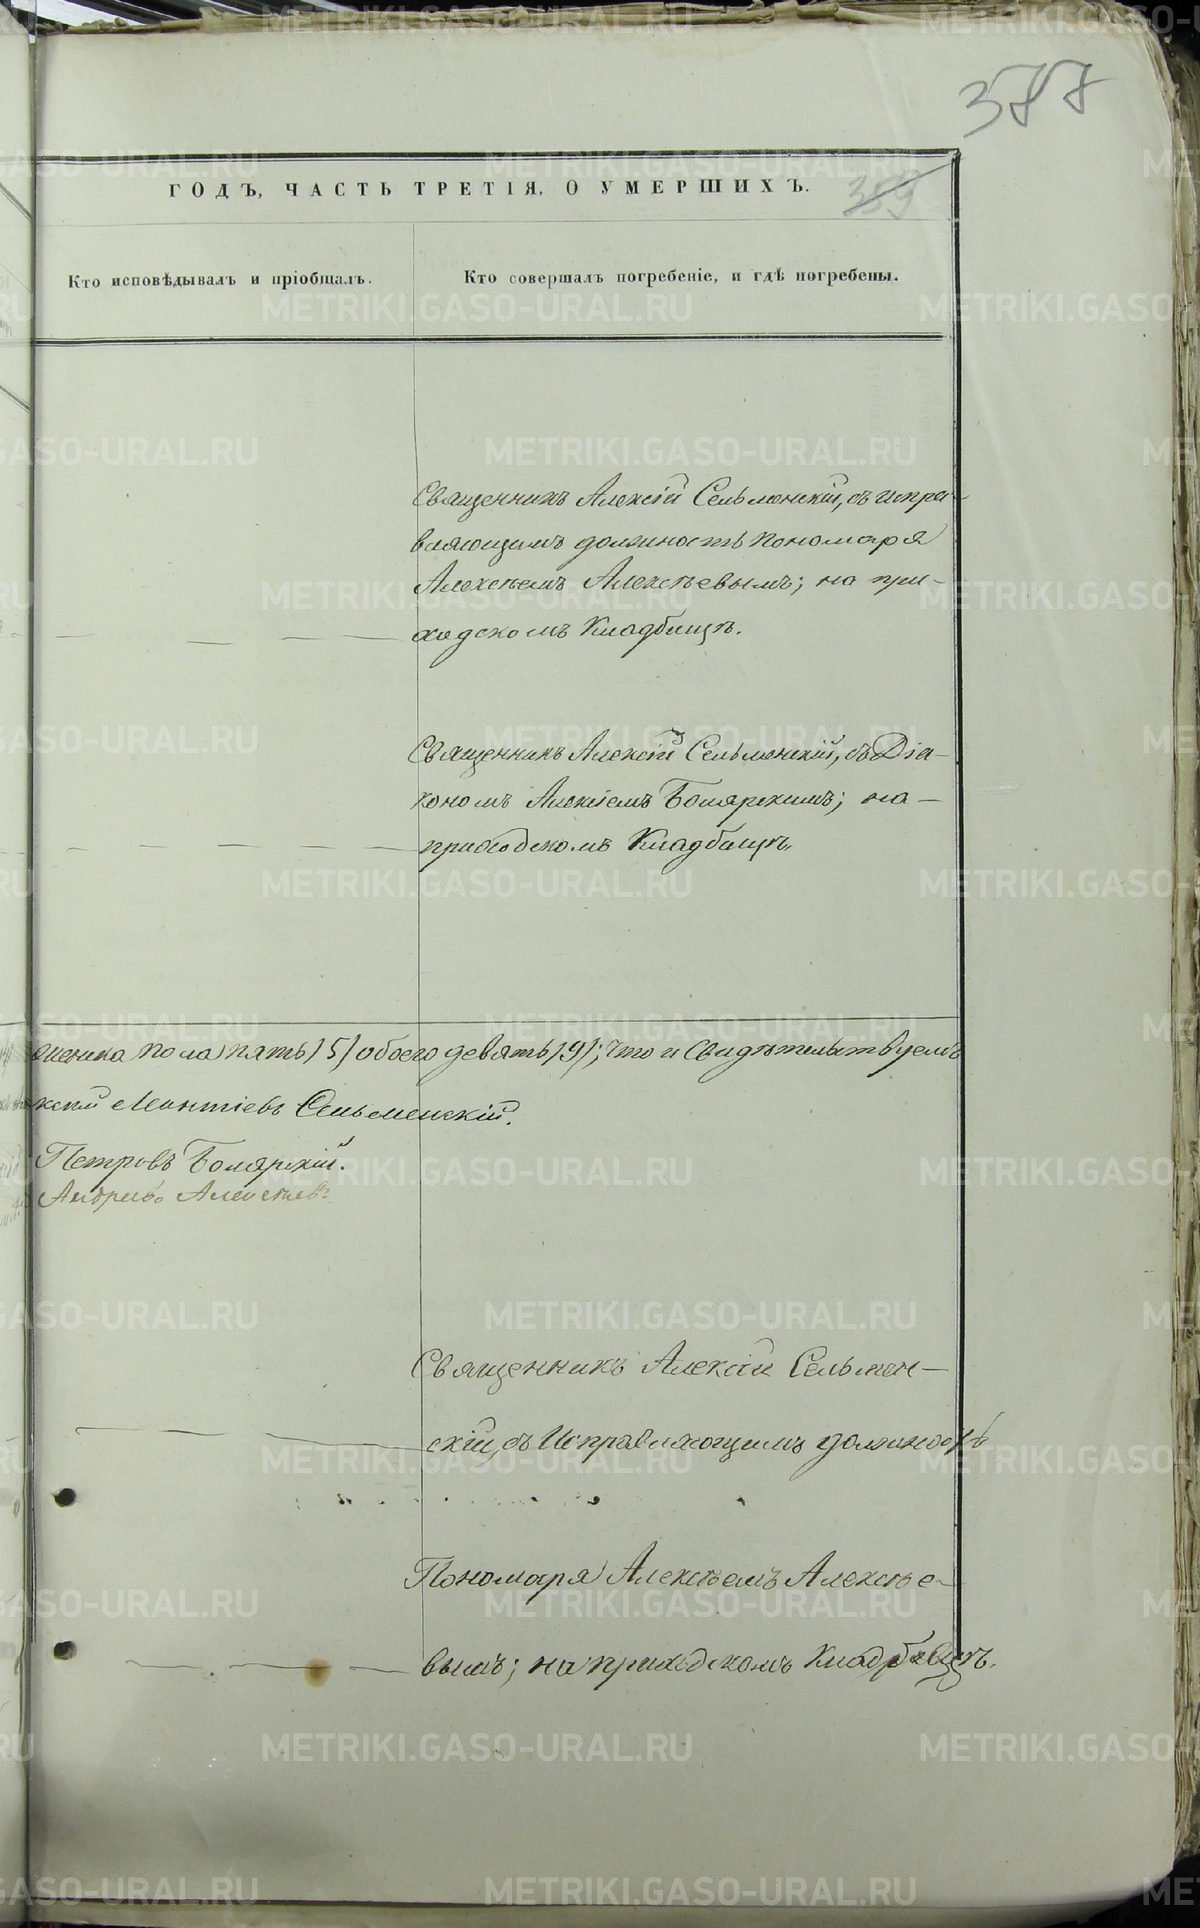 377
ГОДЪ, ЧАСТЬ ТРЕТІЯ, О УМЕРШИХЪ.
359
Кто исповѣдывалъ и пріобщалъ.
Кто совершалъ погребеніе, и гдѣ погребены.
Священникъ Алексій Сельменскій, съ испра-
вляющимъ должность Пономаря
Алексѣемъ Алексѣевымъ; на при-
ходскомъ Кладбищѣ.
Священникъ Алексій Сельменскій, съ Діа-
кономъ Алексіемъ Боярскимъ; на
приходскомъ Кладбищѣ.
женска пола пять /5/ обоего девять /9/; что и свидѣтельствуемъ
ксій Мантіевъ Сельменскій.
Петровъ Боярскій.
Андрей Алексѣевъ
Священникъ Алексій Сельмен-
скій, съ Исправляющимъ должность
Пономаря Алексѣемъ Алексѣе-
вымъ; на приходскомъ Кладбищѣ.
METRIKI.GASO-URAL.RU